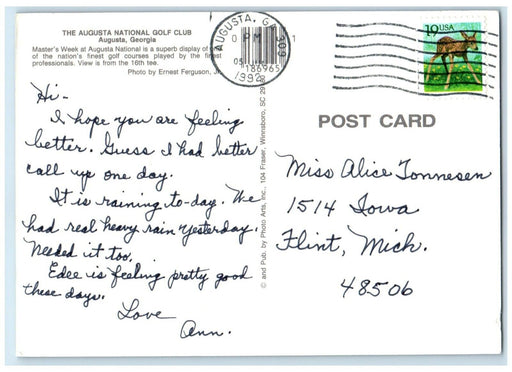 THE AUGUSTA NATIONAL GOLF CLUB
Augusta, Georgia
Master's Week at Augusta National is a superb display of
of the nation's finest golf courses played by the finest
professionals. View is from the 16th tee.
Photo by Ernest Ferguson, Jr.
Hi-
I hope you are feeling
better. Guess I had better
call up one day.
It is raining to-day. We
had real heavy rain yesterday.
Needed it too.
Edee is feeling pretty good
these days.
Love
Ann.
© and Pub. by Photo Arts, Inc., 104 Fraser, Winnsboro, SC
AUGUSTA, GA 309
PM
1992
19 USA
POST CARD
Miss Alice Tonnesen
1514 Iowa
Flint, Mich.
48506